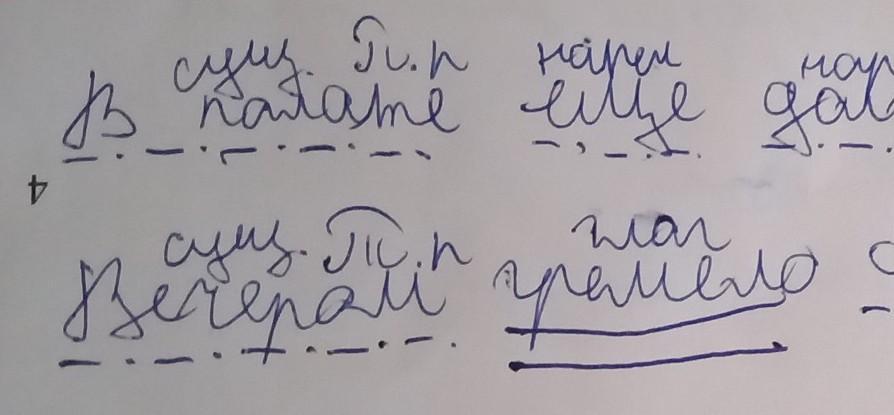 сущ. П.п нареч нар
В палате еще дал
4
сущ. Т.п глаг
Вечерам гремело